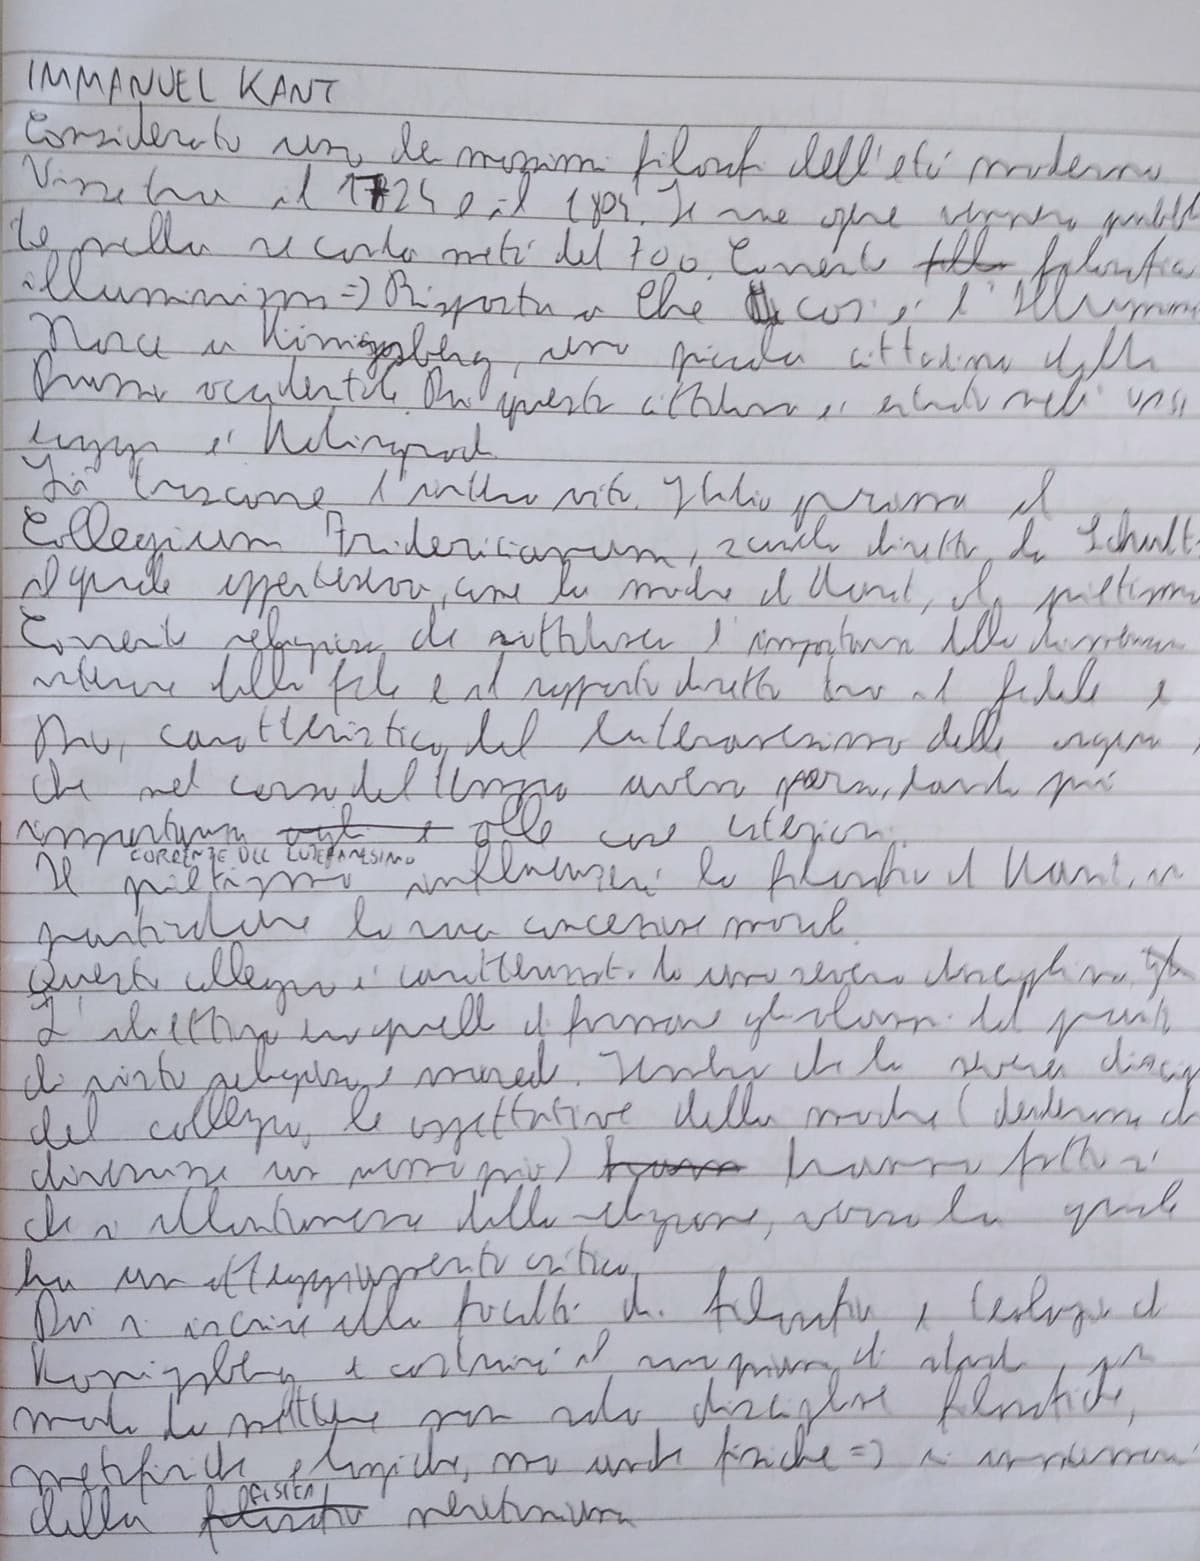 IMMANUEL KANT
Considerato uno dei massimi filosofi dell'età moderna
Visse tra il 1724 e il 1804. Le sue opere vennero pubblica
te nella seconda metà del 700. Corrente filosofica
illuminismo => Risposta a Che cos'è l'Illuminis
Nasce a Königsberg, una piccola cittadina della
Prussia occidentale. Poi questa cittadina è entrata nell' URSS
oggi è Kaliningrad
Lì trascorre l'intera vita. Studia prima al
Collegium Fridericianum, scuola diretta da Schult
il quale apparteneva, come la madre di Kant, al pietismo
Corrente religiosa che sottolinea l'importanza della dimensione
interiore della fede e il rapporto diretto tra il fedele e
Dio, caratteristica del luteranesimo delle origini,
che nel corso del tempo aveva perso, dando più
importanza alle cose esteriori.
CORRENTE DEL LUTERANESIMO
Il pietismo influenzerà la filosofia di Kant, in
particolare la sua concezione morale.
Questo collegio è caratterizzato da una severa disciplina
L'obiettivo era quello di formare gli alunni dal punto
di vista religioso e morale. Sembra che la severa discip
del collegio, le aspettative della madre (desiderosa che
divenisse un uomo pio) hanno fatto sì
che si allontanasse dalla religione, verso la quale
ha un atteggiamento critico.
Poi si iscrive alla facoltà di filosofia e teologia di
Konigsberg e costruirà il suo piano di studi, in
modo da mettere non solo discipline filosofiche,
metafisiche e logiche, ma anche fisiche => si
della FISICA newtoniana